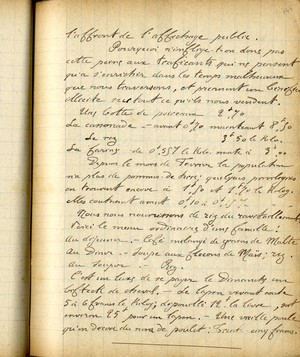 l'affront de l'affichage public.
Pourquoi n'inflige-t-on donc pas
cette peine aux trafiquants qui ne pensent
qu'à s'enrichir dans les temps malheureux
que nous traversons, et prennent un bénéfice
illicite sur tout ce qu'ils nous vendent.
Une botte de poireaux 2f70
La cassonade - avant 0f70 maintenant 8f50
Le riz 3f50 le kilo.
La farine de 0f35 le kilo monte à 3f
Depuis le mois de Février la population
n'a plus de pommes de terre; quelques
on trouvait encore à 1f50 et 1f70 le kilog.
Elles coutaient avant 0f10 à
Nous nous nourrissons de riz
Voici le menu ordinaire d'une famille:
Au déjeuner. - Café mélangé de grains de Malte
Au Diner - Soupe aux flocons de Maïs; riz.
Au Souper Riz.
C'est un luxe de se payer le Dimanche un
bifteck de cheval. - Le lapin vivant vaut
5 à 6 francs le kilog; dépouillé 12f la livre, soit
environ 25f pour un lapin. - Une vieille poule
qu'on décore du nom de poulet: Trente cinq francs.